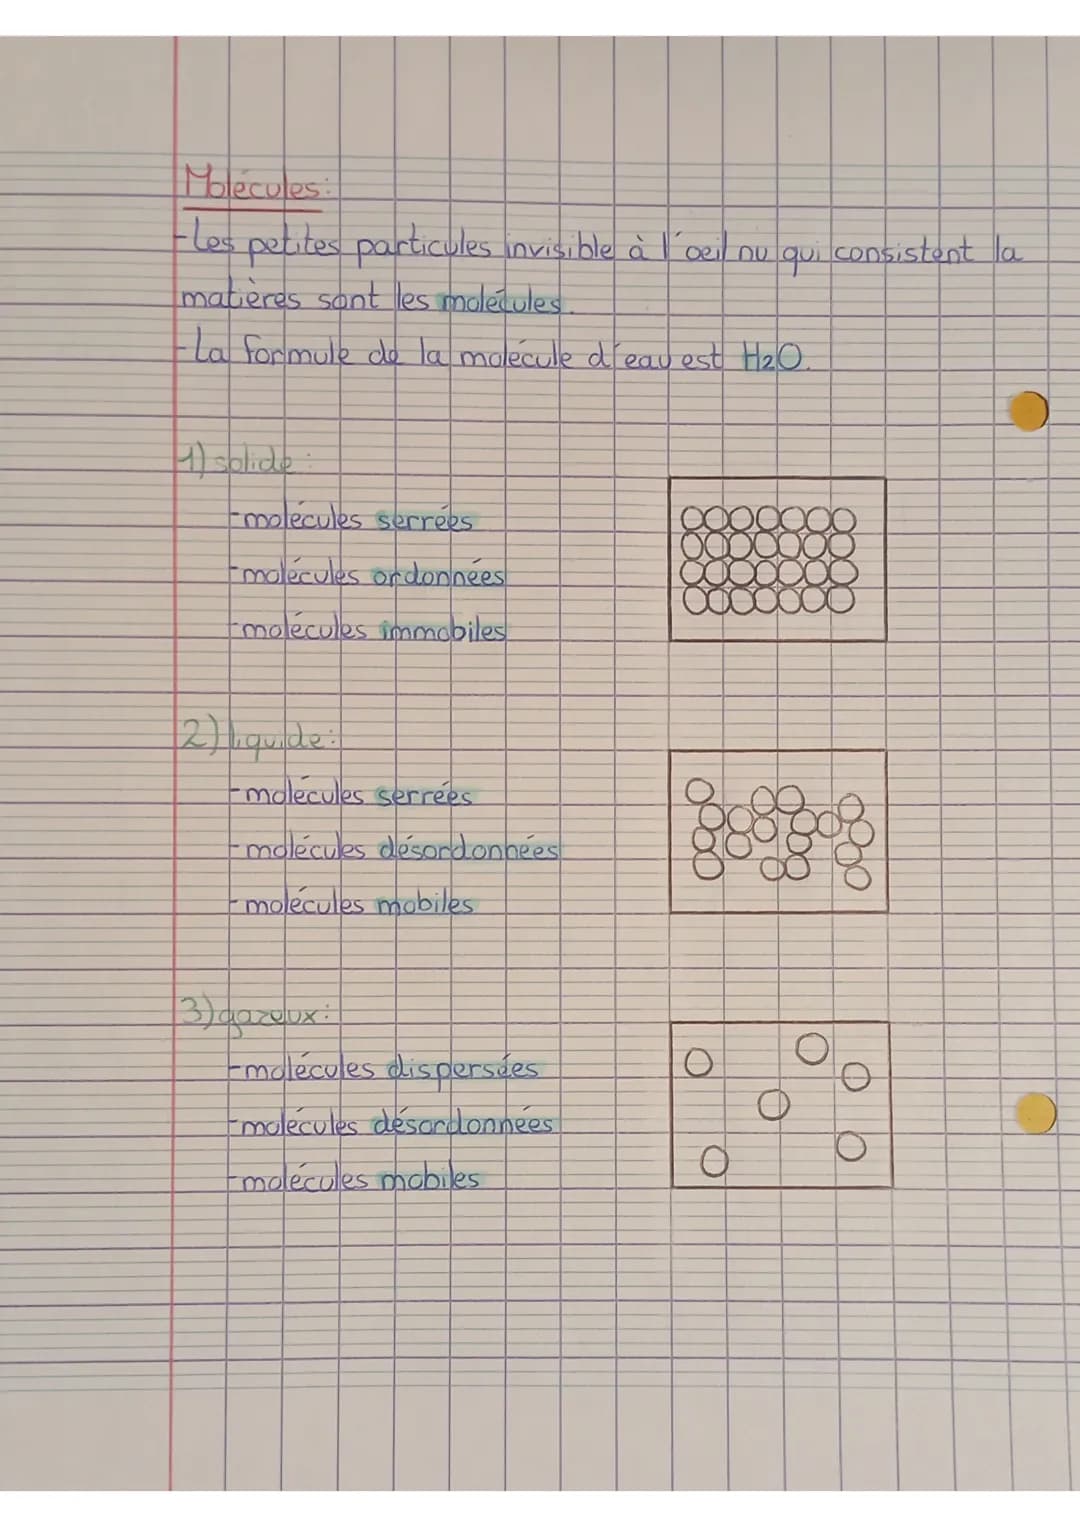 Molécules:
-Les petites particules invisible à l'oeil nu qui consistent la
matières sont les molécules.
-La formule de la molécule d'eau est H2O.
1) solide :
-molécules serrées
-molécules ordonnées
-molécules immobiles
2) liquide:
-molécules serrées
-molécules désordonnées
-molécules mobiles
3) gazeux:
-molécules dispersées
-molécules désordonnées
-molécules mobiles